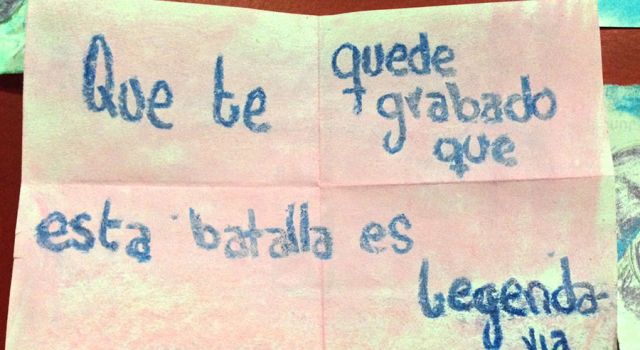 Que te quede
grabado
que
esta batalla es
legenda-
ria